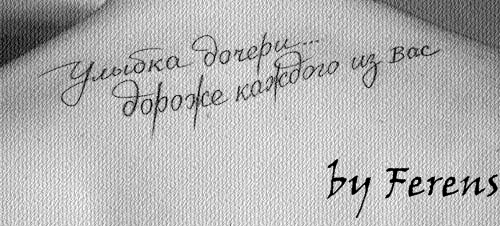 Улыбка дочери...
дороже каждого из вас
by Ferens